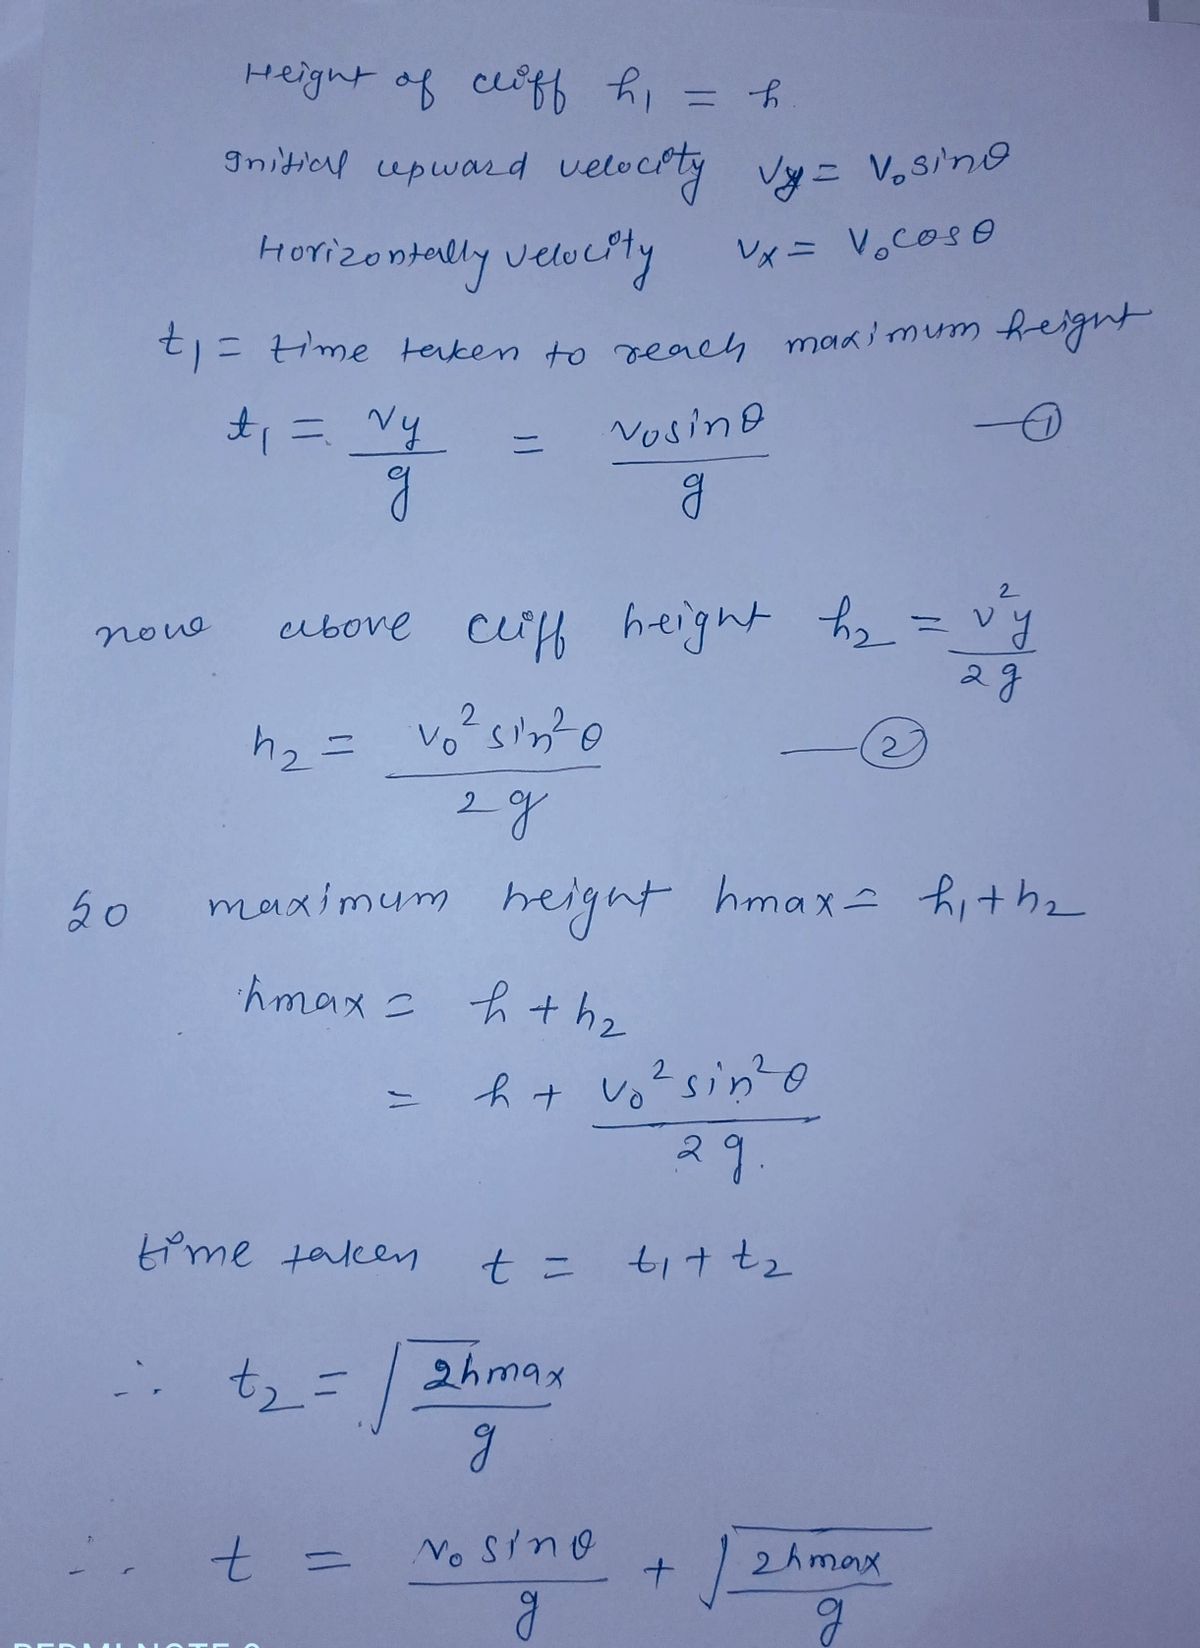 Height of cliff h₁ = h
Initial upward velocity Vy = V₀ sinθ
Horizontally velocity Vx = V₀ cosθ
t₁ = time taken to reach maximum height
t₁ = Vy/g = V₀sinθ/g —①
now above cliff height h₂ = v²y/2g
h₂ = V₀² sin²θ/2g —②
So maximum height hmax = h₁ + h₂
hmax = h + h₂
= h + V₀² sin²θ/2g.
time taken t = t₁ + t₂
∴ t₂ = √(2hmax/g)
∴ t = V₀ sinθ/g + √(2hmax/g)